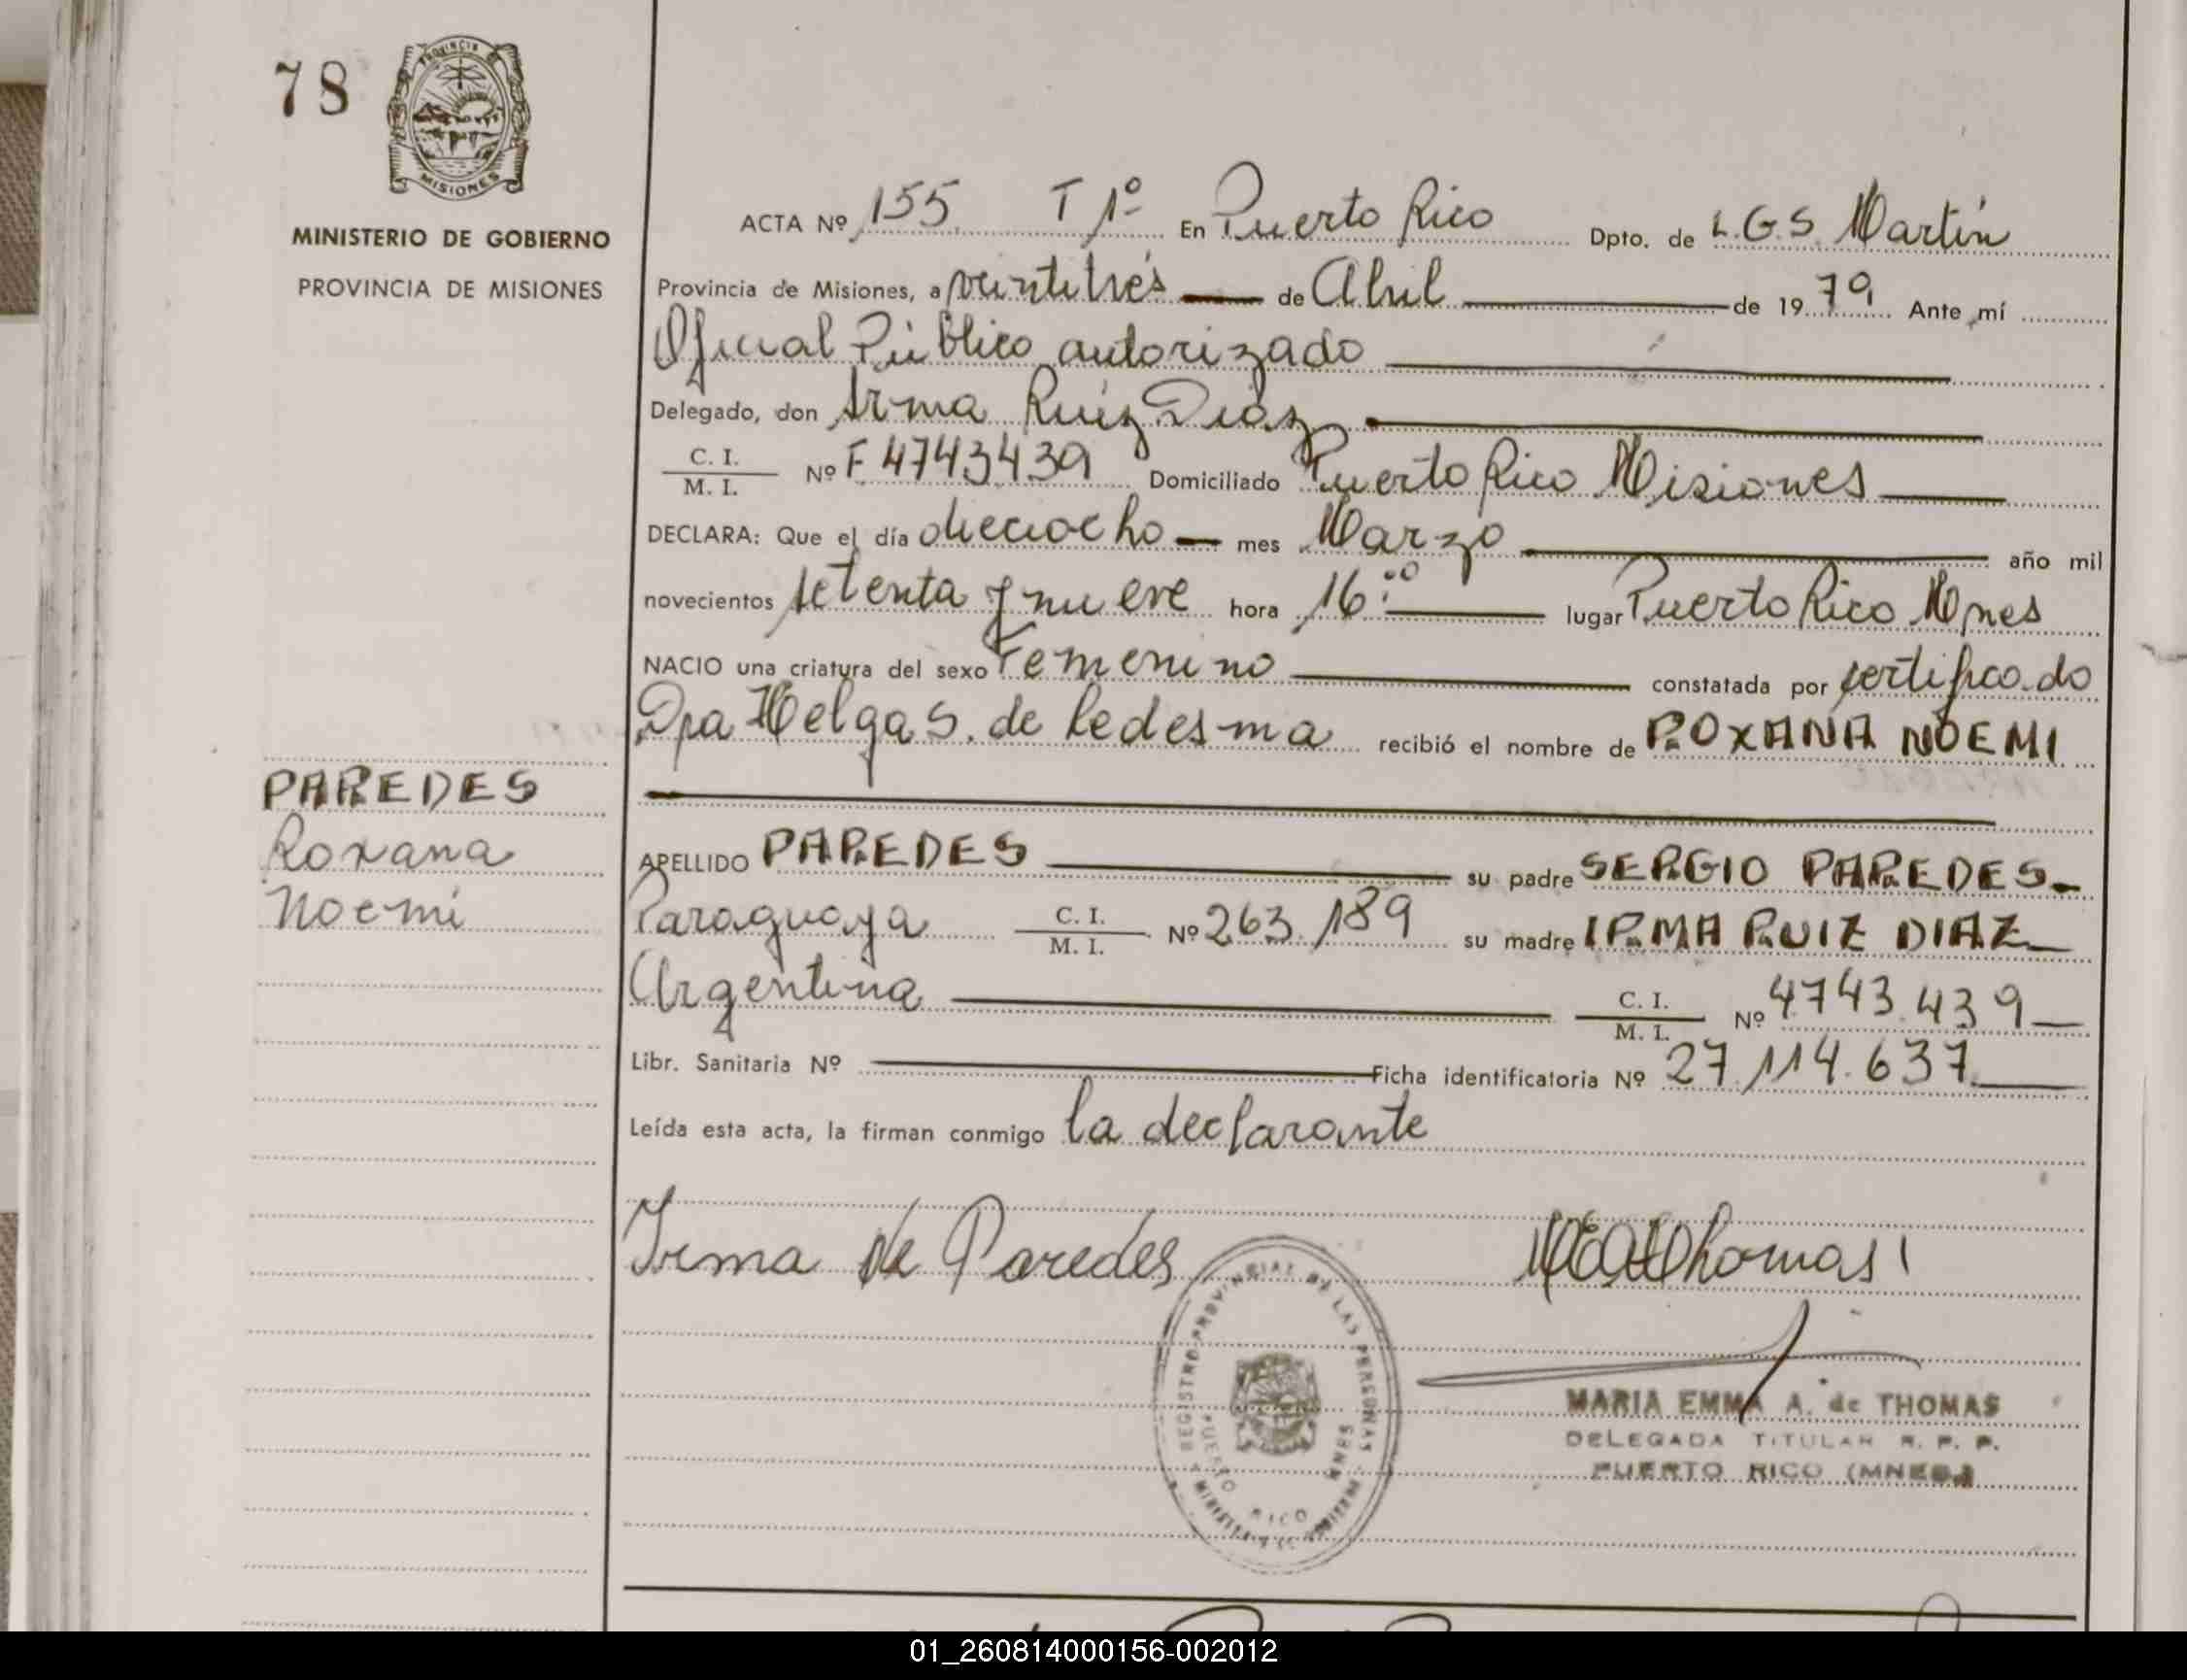 78
PROVINCIA
MISIONES
MINISTERIO DE GOBIERNO
PROVINCIA DE MISIONES
ACTA Nº 155 T 1º En Puerto Rico Dpto. de L.G.S. Martín
Provincia de Misiones, a veintitrés de Abril de 1979 Ante mí
Oficial Público autorizado
Delegado, don Irma Ruiz Diaz
C. I.
M. I. Nº F 4743439 Domiciliado Puerto Rico Misiones
DECLARA: Que el día dieciocho mes Marzo año mil
novecientos setenta y nueve hora 16:00 lugar Puerto Rico Mnes
NACIO una criatura del sexo Femenino constatada por certificado
Dra Helga S. de Ledesma recibió el nombre de ROXANA NOEMI
PAREDES
Roxana
Noemi
APELLIDO PAREDES su padre SERGIO PAREDES
Paraguaya C. I. M. I. Nº 263.189 su madre IRMA RUIZ DIAZ
Argentina C. I. M. I. Nº 4743.439
Libr. Sanitaria Nº Ficha identificatoria Nº 27.114.637
Leída esta acta, la firman conmigo la declarante
Irma de Paredes
REGISTRO PROVINCIAL DE LAS PERSONAS
PUERTO RICO MNES
MARIA EMMA A. de THOMAS
DELEGADA TITULAR R. P. P.
PUERTO RICO (MNES.)
01_260814000156-002012